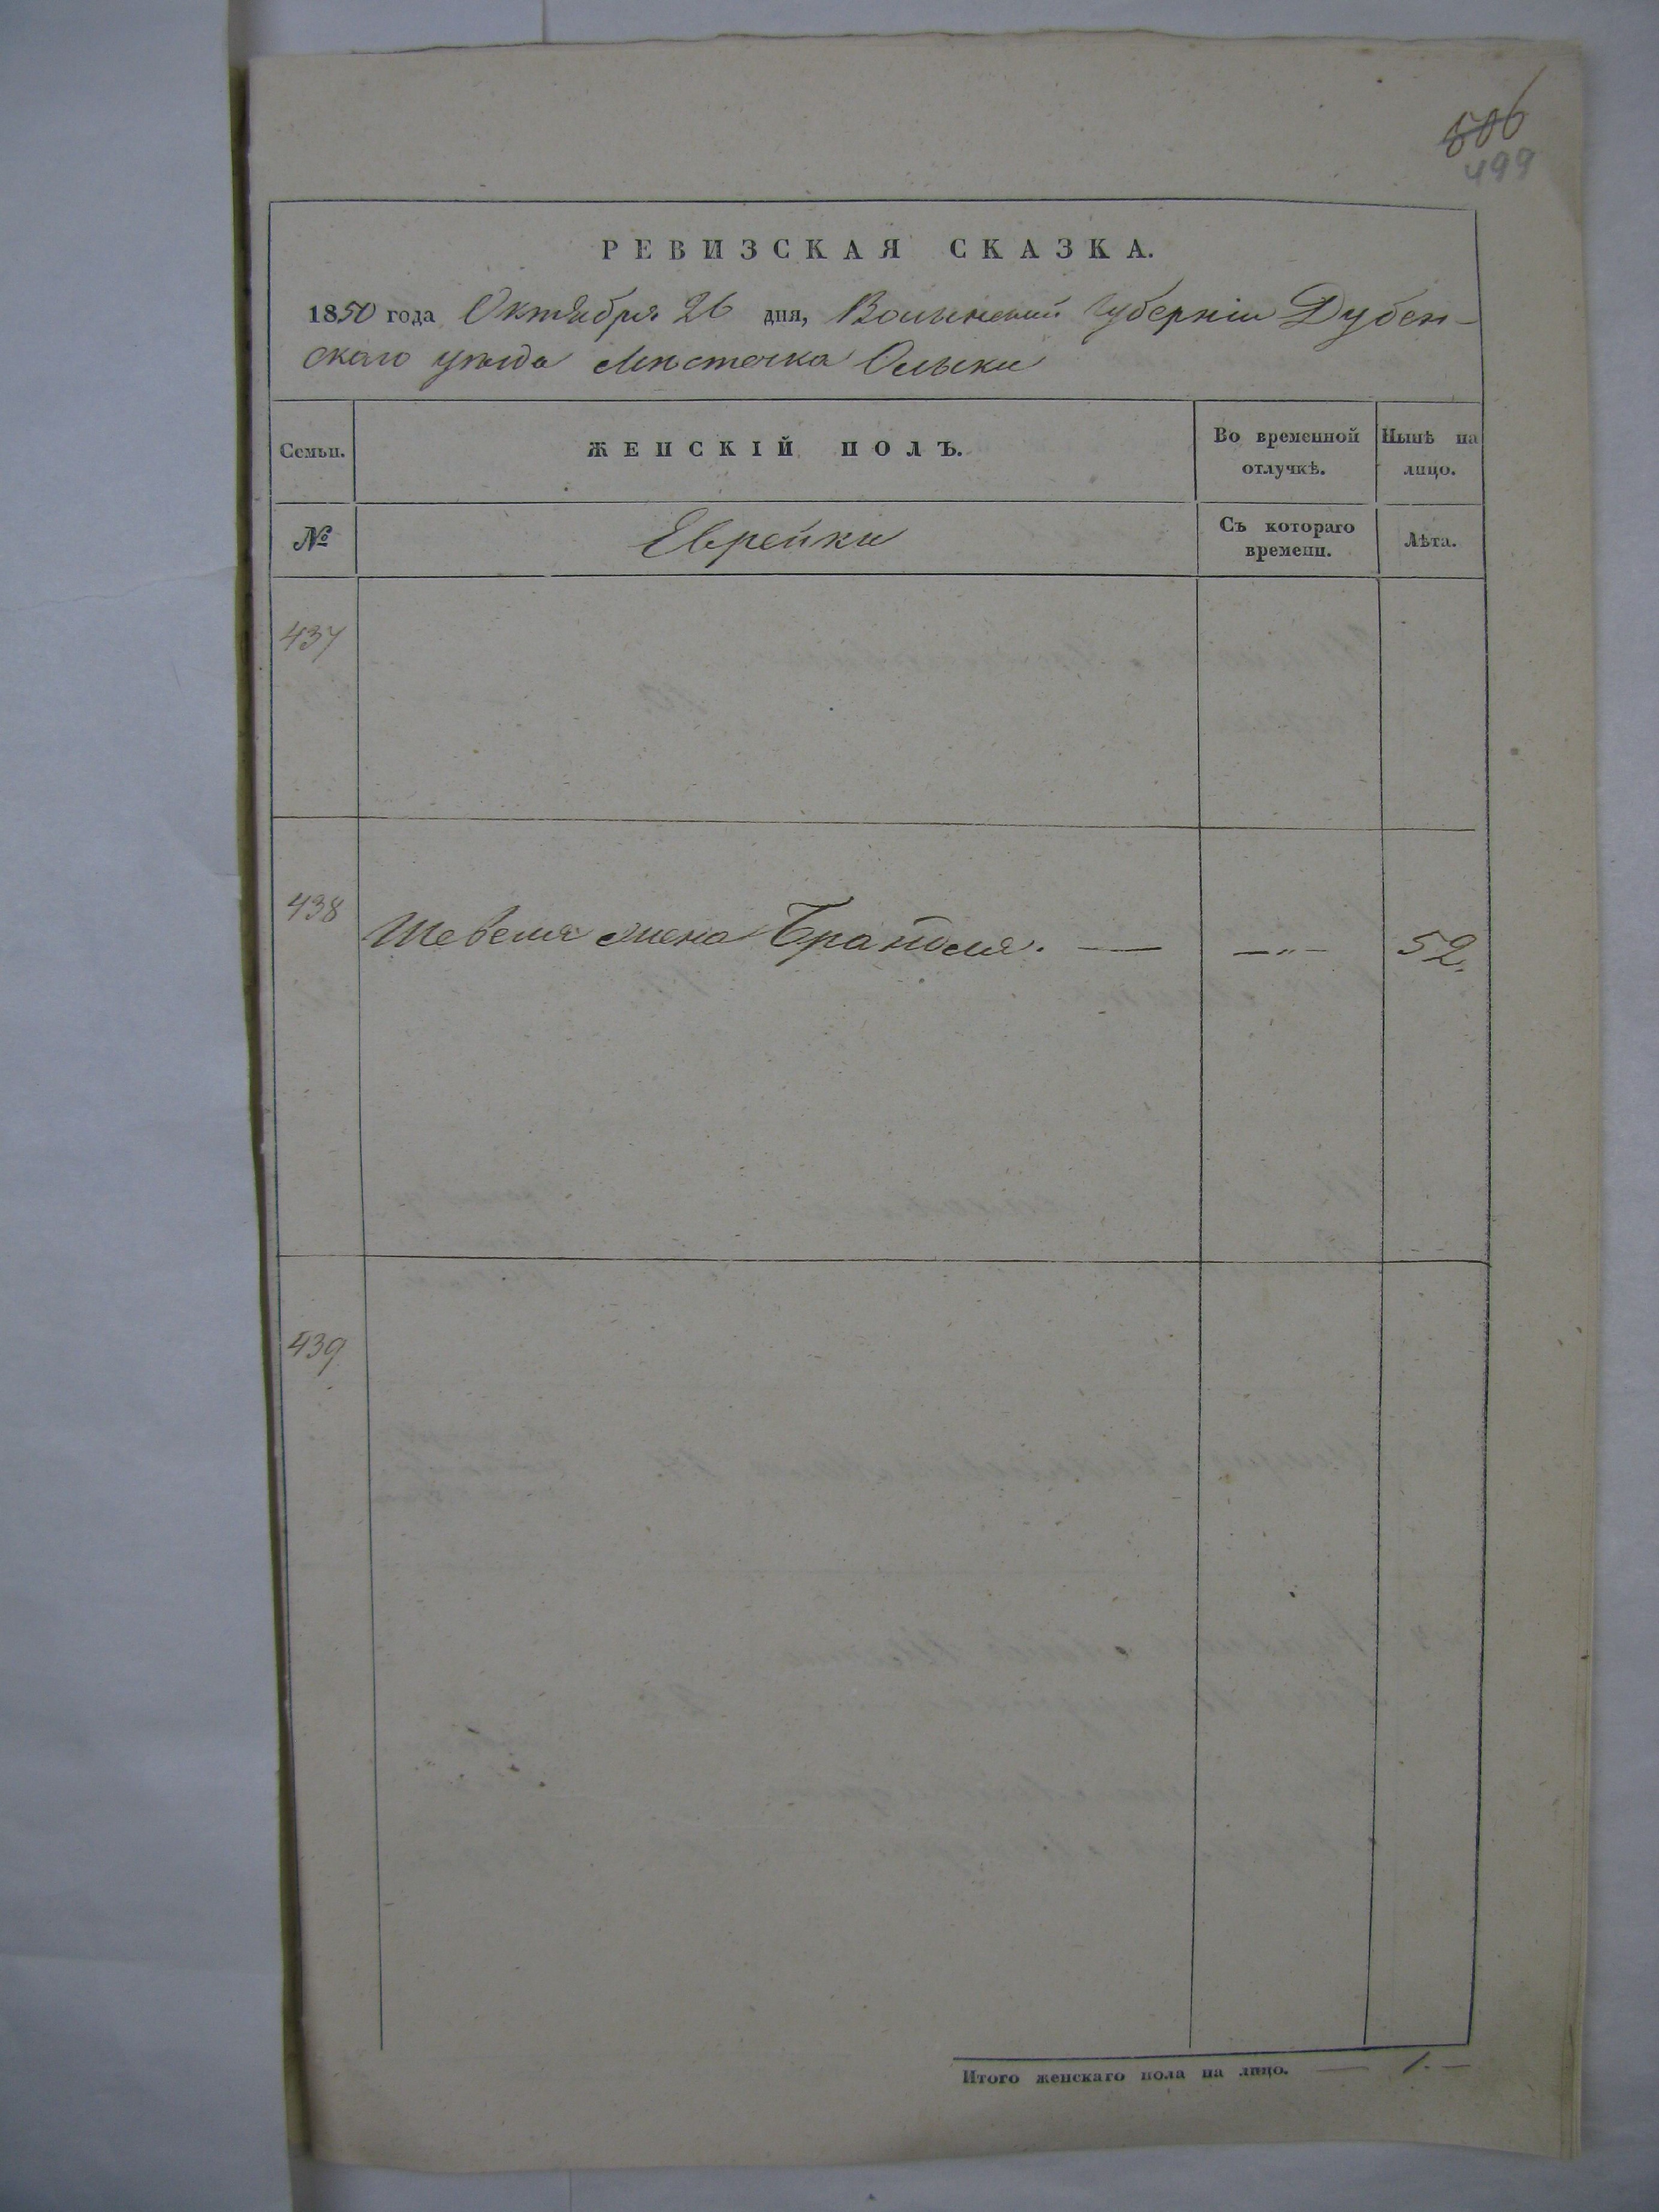 506
499
РЕВИЗСКАЯ СКАЗКА.
1850 года Октября 26 дня, Волынской Губернiи Дубен-
скаго уѣзда Мѣстечка Олыки
Семьи. ЖЕНСКIЙ ПОЛЪ. Во временной отлучкѣ. Нынѣ на лицо.
№ Еврейки Съ котораго времени. Лѣта.
437
438 Шевеля жена Брандля. — —„— 52.
439
Итого женскаго пола на лицо. — 1. —